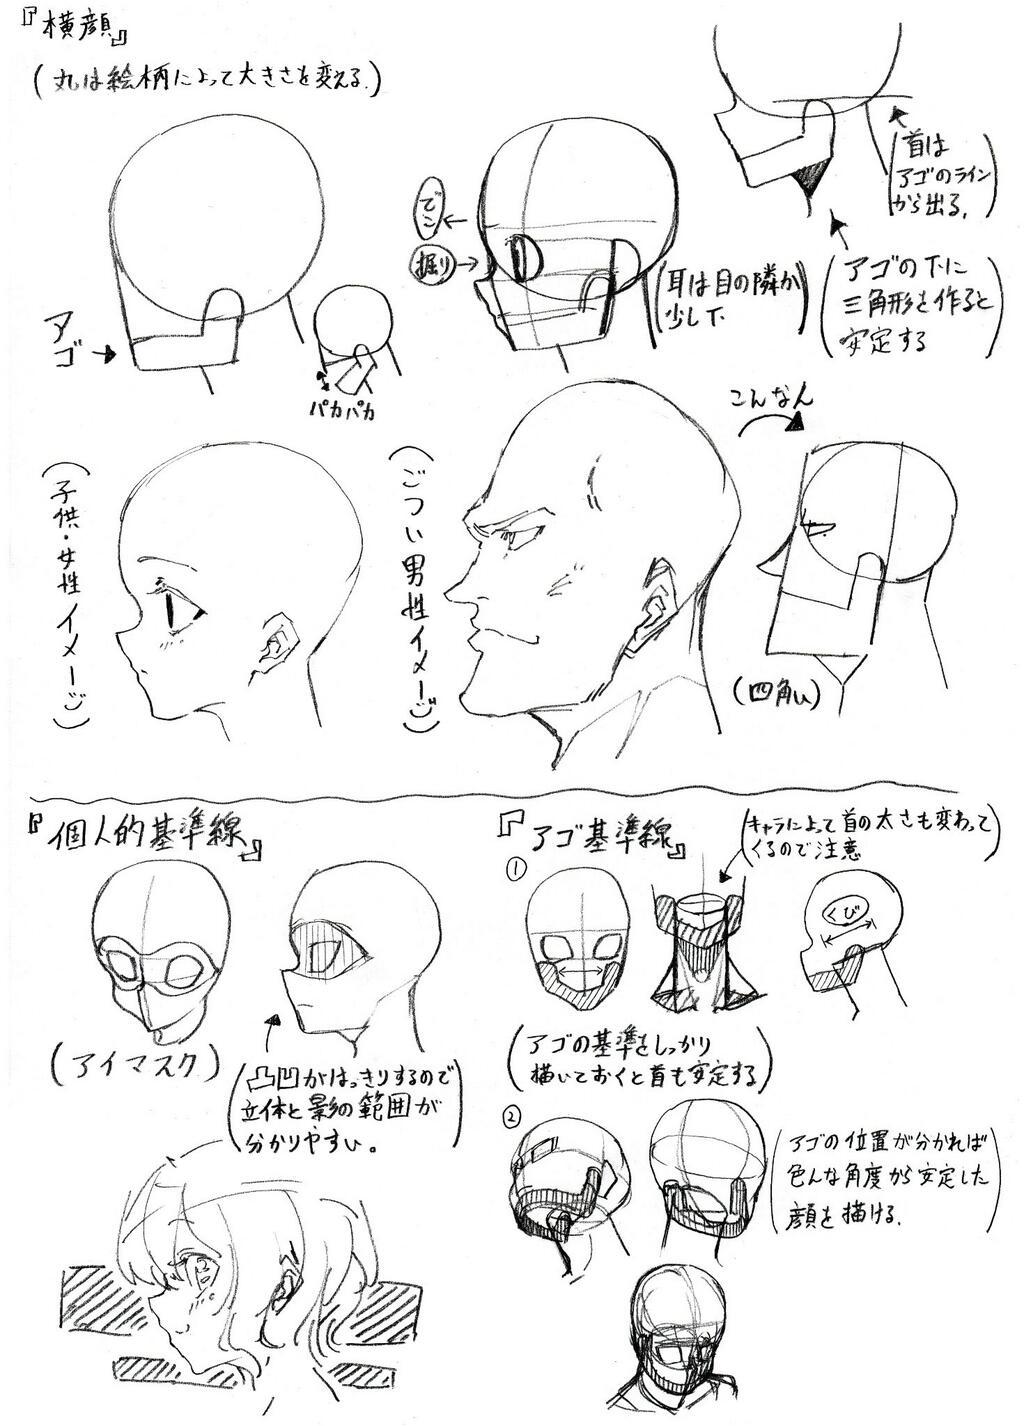 『横顔』
(丸は絵柄によって大きさを変える.)
アゴ
パカパカ
でこ
掘り
(耳は目の隣か
少し下)
(首は
アゴのライン
から出る.)
(アゴの下に
三角形を作ると
安定する)
(子供・女性イメージ)
(ごつい男性イメージ)
こんなん
(四角い)
『個人的基準線』
(アイマスク)
(凸凹がはっきりするので
立体と影の範囲が
分かりやすい。)
『アゴ基準線』
(キャラによって首の太さも変わって
くるので注意)
①
くび
(アゴの基準をしっかり
描いておくと首も安定する)
②
(アゴの位置が分かれば
色んな角度から安定した
顔を描ける.)